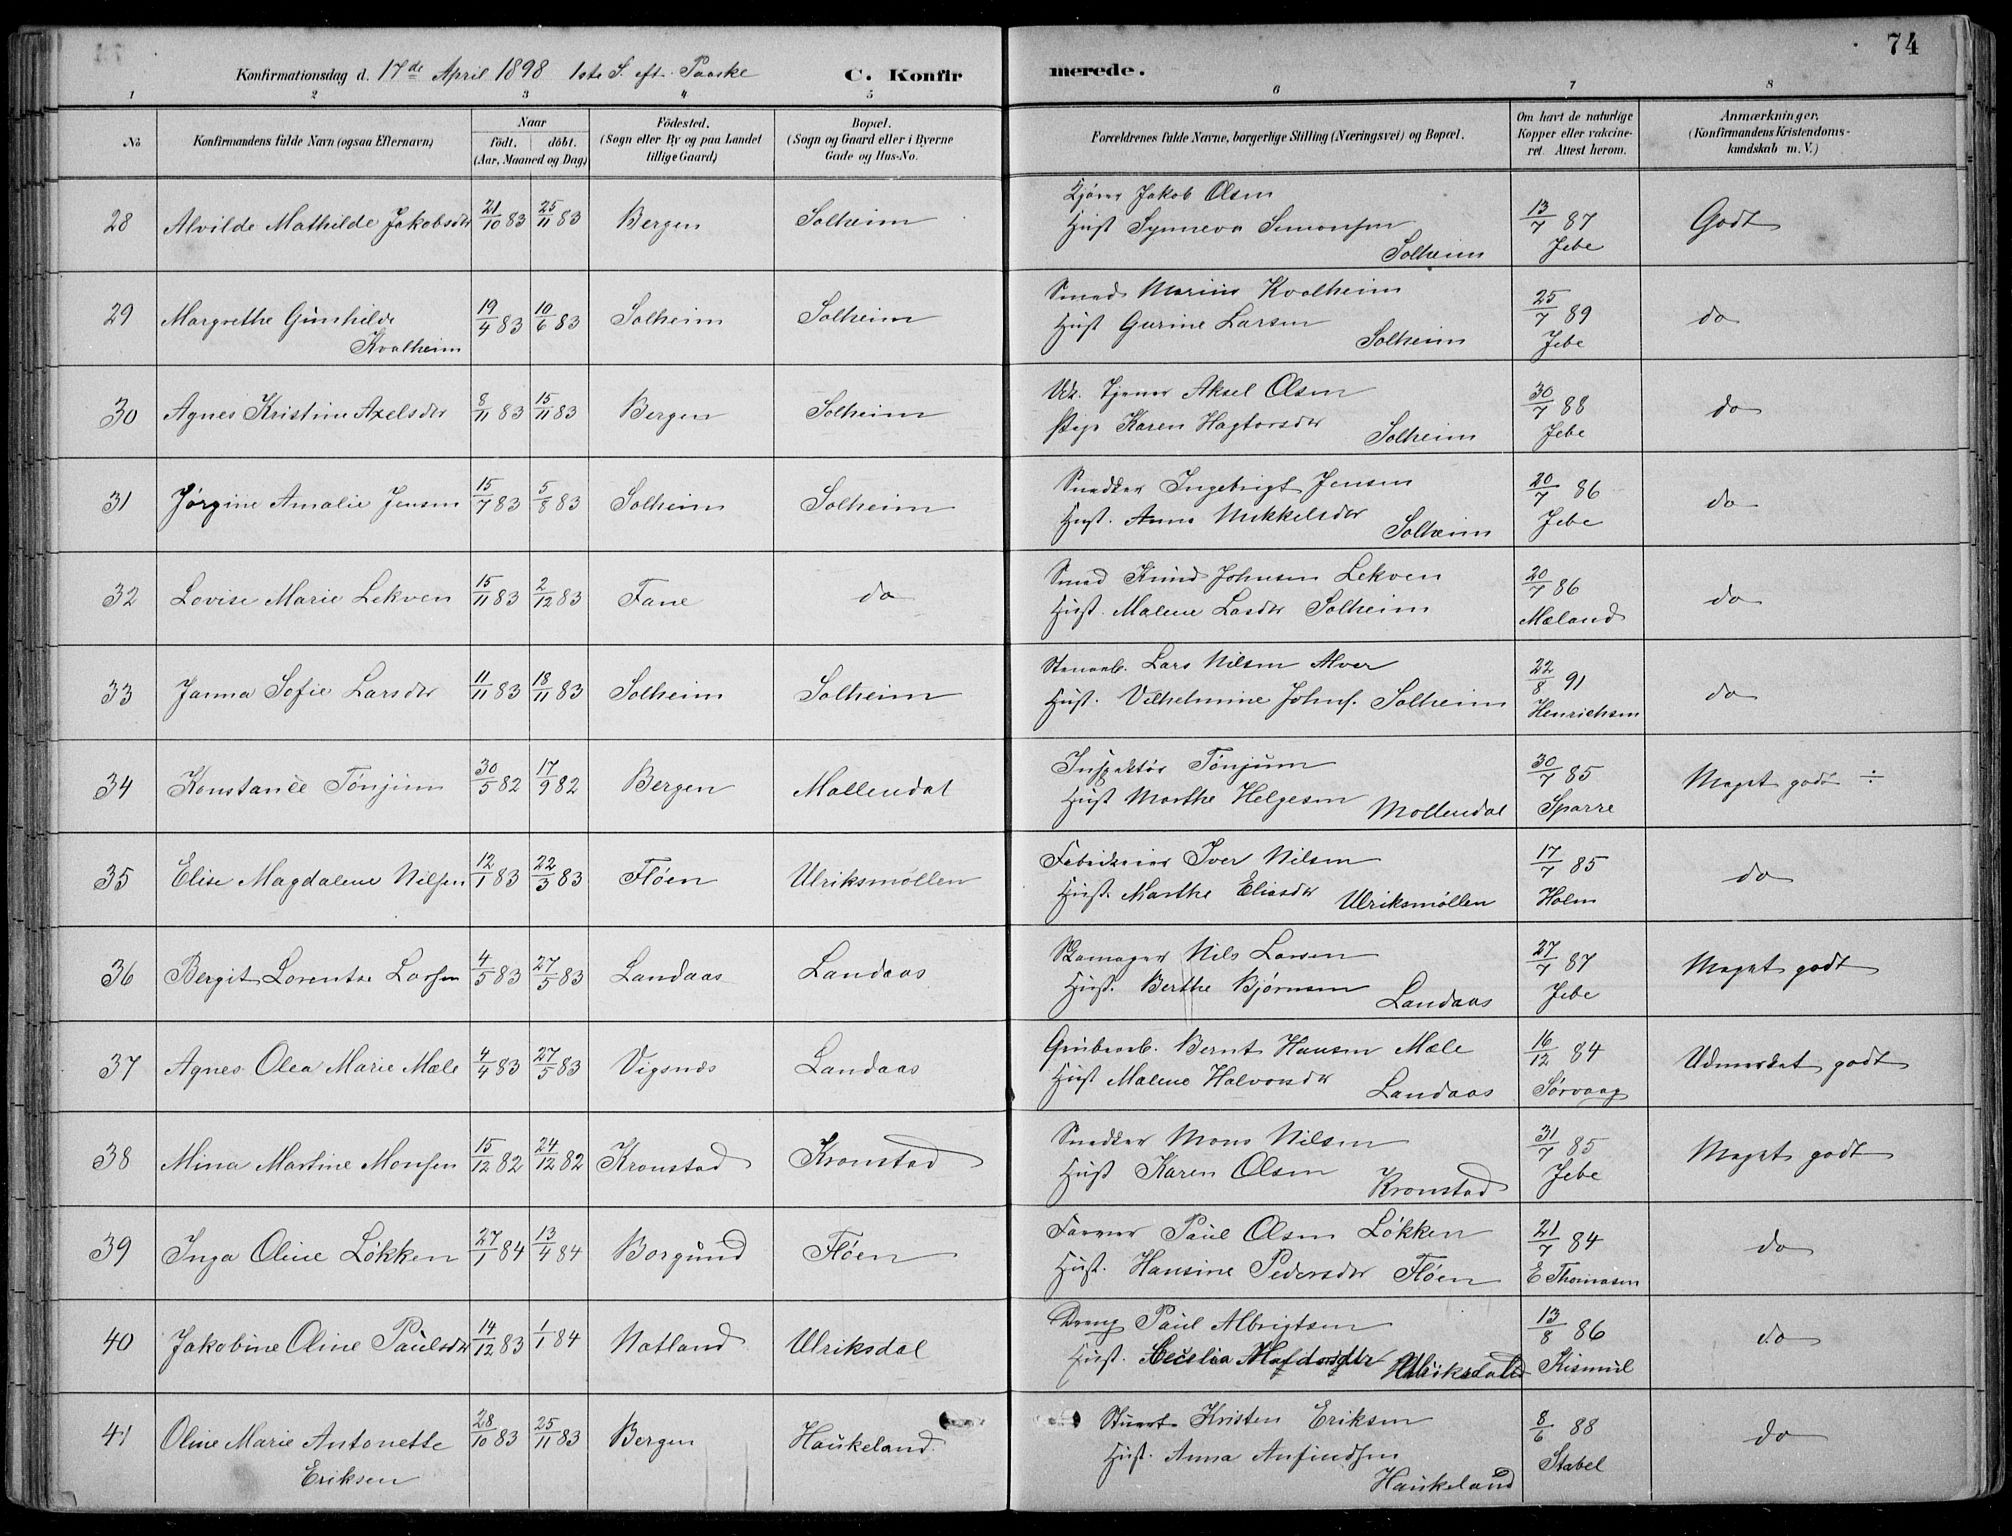 74
Konfirmationsdag d. 17de April 1898 1ste S. eft. Paaske C. Konfirmerede.
1 2 3 4 5 6 7 8
No Konfirmandens fulde Navn (ogsaa Efternavn) Naar født. døbt. (Aar, Maaned og Dag) Fødested. (Sogn eller By og paa Landet tillige Gaard) Bopæl. (Sogn og Gaard eller i Byerne Gade og Hus-No. Forældrenes fulde Navne, borgerlige Stilling (Næringsvei) og Bopæl. Om havt de naturlige Kopper eller vakcineret. Attest herom. Anmærkninger, (Konfirmandens Kristendomskundskab m. V.)
28 Alvilde Mathilde Jakobsdtr 21/10 83 25/11 83 Bergen Solheim Kjører Jakob Olsen 13/7 87 Godt
Hust Synneva Simonsen Solheim Jebe
29 Margrethe Gunhilde 19/4 83 10/6 83 Solheim Solheim Smed Marius Kvalheim 25/7 89 do
Kvalheim Hust Gurine Larsen Solheim Jebe
30 Agnes Kristine Axelsdtr 8/11 83 15/11 83 Bergen Solheim Uk. Tjener Aksel Olsen 30/7 88 do
Pige Karen Hagtorsdtr Solheim Jebe
31 Jørgine Amalie Jensen 15/7 83 5/8 83 Solheim Solheim Snedker Ingebrigt Jensen 20/7 86 do
Hust. Anna Mikkelsdtr Solheim Jebe
32 Lovise Marie Lekven 15/11 83 2/12 83 Fane do Smed Knud Johnsen Lekven 20/7 86 do
Hust. Malene Lasdtr Solheim Mæland
33 Janna Sofie Larsdtr 11/11 83 18/11 83 Solheim Solheim Stenarb. Lars Nilsen Alver 22/8 91 do
Hust. Vilhelmine Johns. Solheim Henrichsen
34 Konstance Tønjum 30/5 82 17/9 82 Bergen Møllendal Inspektør Tønjum 30/7 85 Meget godt ÷
Hust Marthe Helgesen Møllendal Sparre
35 Elise Magdalene Nilsen 12/1 83 22/3 83 Fløen Ulriksmøllen Iver Nilsen 17/7 85 do
Hust. Marthe Eliasdtr Ulriksmøllen Holm
36 Bergit Lorentse Larsen 4/5 83 27/5 83 Landaas Landaas Skomager Nils Larsen 27/7 87 Meget godt
Hust. Berthe Bjørnsen Landaas Jebe
37 Agnes Olea Marie Mæle 4/4 83 27/5 83 Vigsnæs Landaas Grubearb. Bernt Hansen Mæle 16/12 84 Udmerket godt
Hust Malene Halvorsdtr Landaas Sørvaag
38 Mina Martine Monsen 15/12 82 24/12 82 Kronstad Kronstad Snedker Mons Nilsen 31/7 85 Meget godt
Hust Karen Olsen Kronstad Jebe
39 Inga Oline Løkken 27/1 84 13/4 84 Borgund Fløen Farver Paul Olsen Løkken 21/7 84 do
Hust. Hansine Pedersdtr Fløen E Thomasen
40 Jakobine Oline Paulsdtr 14/12 83 1/1 84 Natland Ulriksdal Dreng Paul Albrigtsen 13/8 86 do
Hust. Cecilia Ulriksdal Kismul
41 Oline Marie Antonette 28/10 83 25/11 83 Bergen Haukeland. Stuert Kristen Eriksen 8/6 88 do
Eriksen Hust. Anna Anfindsen Haukeland Stabel